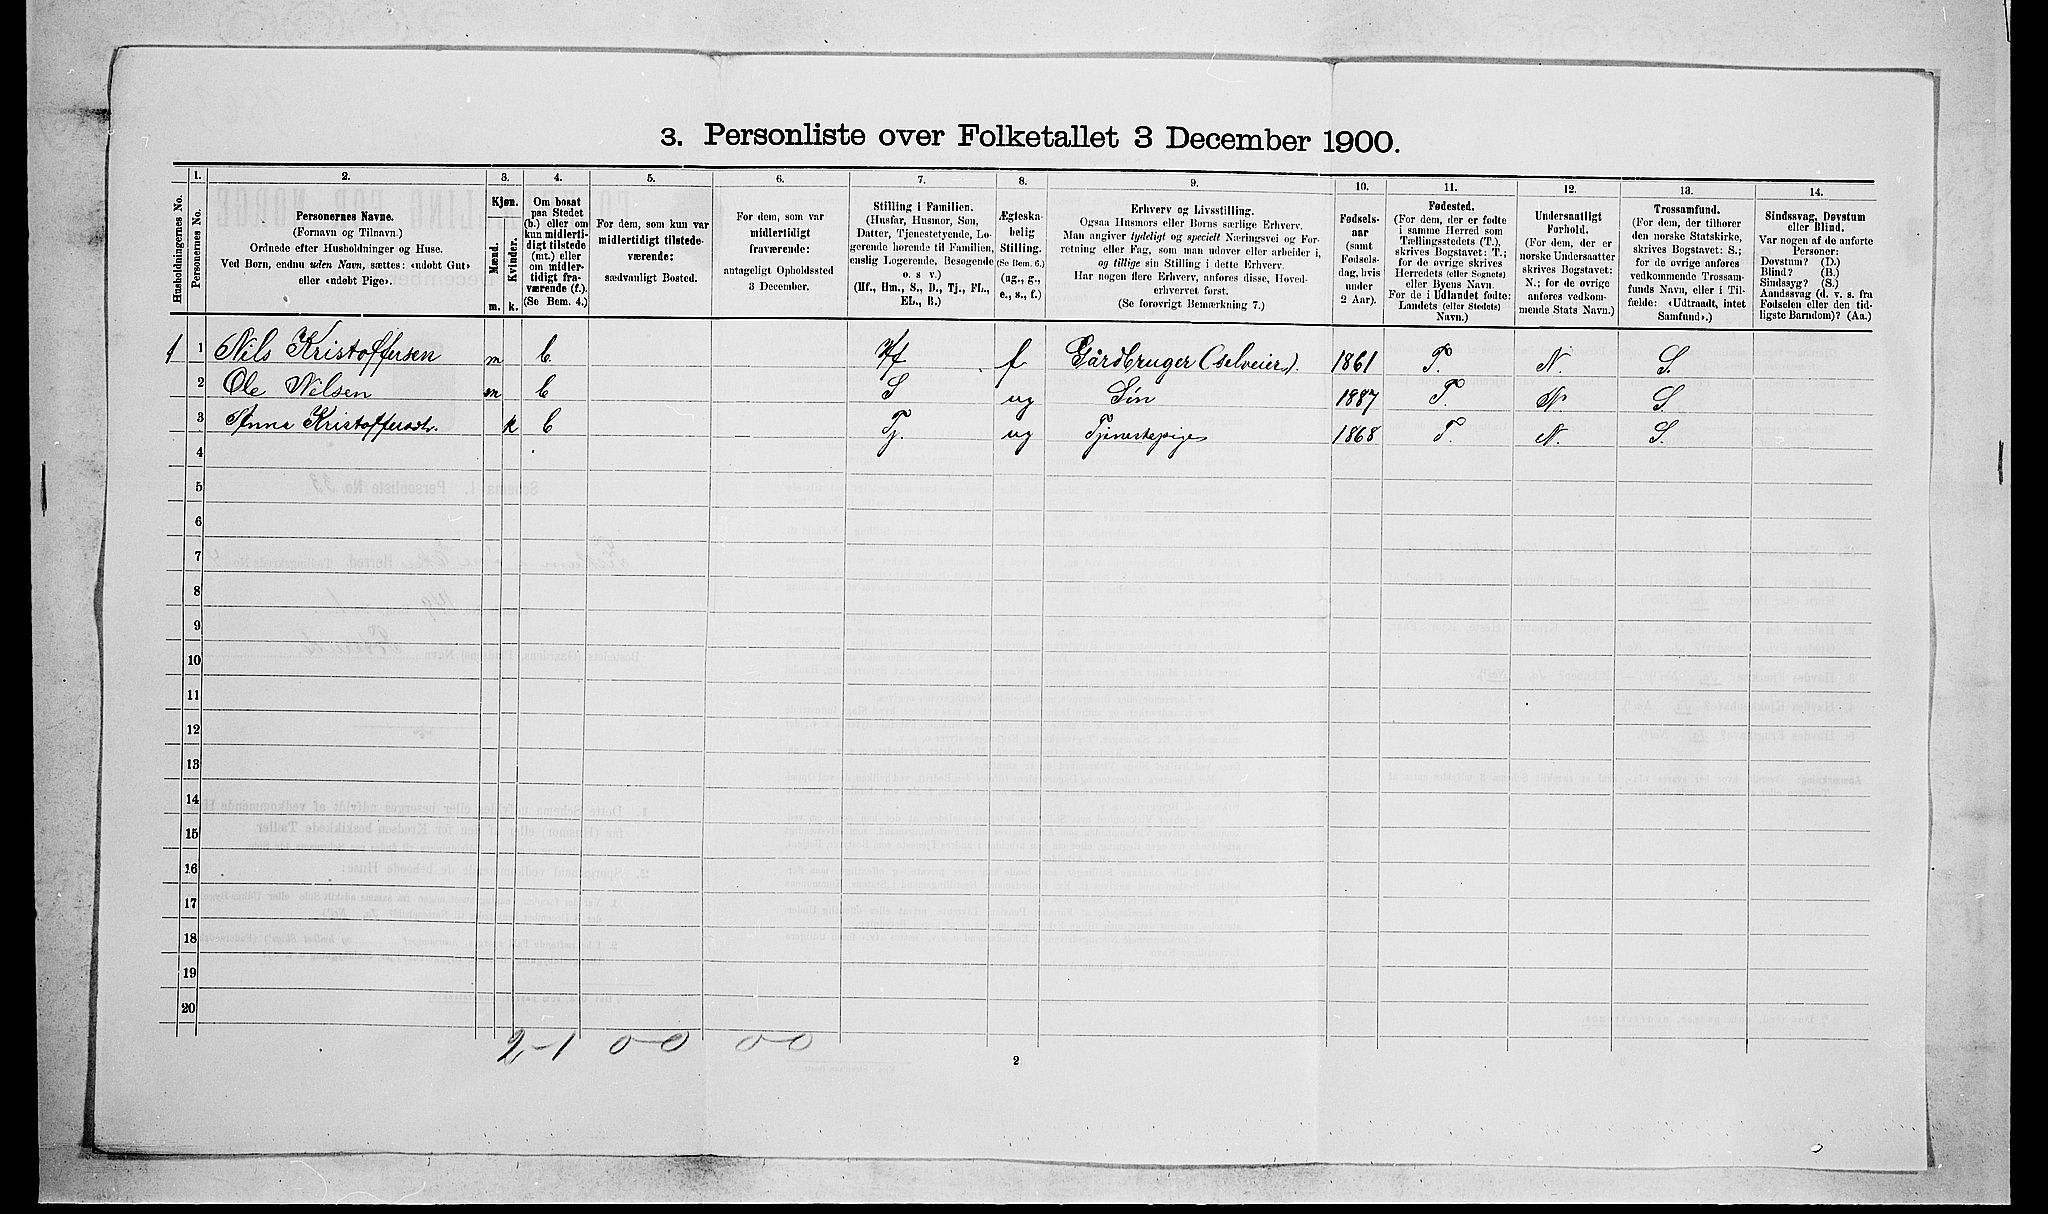 3. Personliste over Folketallet 3 December 1900.
1. 2. 3. 4. 5. 6. 7. 8. 9. 10. 11. 12. 13. 14.
Husholdningernes No.
Personernes No.
Personernes Navne.
(Fornavn og Tilnavn.)
Ordnede efter Husholdninger og Huse.
Ved Børn, endnu uden Navn, sættes: «udøbt Gut»
eller «udøbt Pige».
Kjøn.
Mænd.
Kvinder.
m. k.
Om bosat
paa Stedet
(b.) eller om
kun midlerti-
digt tilstede
(mt.) eller
om midler-
tidigt fra-
værende (f.).
(Se Bem. 4.)
For dem, som kun var
midlertidigt tilstede-
værende:
sædvanligt Bosted.
For dem, som var
midlertidigt
fraværende:
antageligt Opholdssted
3 December.
Stilling i Familien.
(Husfar, Husmor, Søn,
Datter, Tjenestetyende, Lo-
gerende hørende til Familien,
enslig Logerende, Besøgende
o. s. v.)
(Hf., Hm., S., D., Tj., FL.,
EL., B.)
Ægteska-
belig
Stilling.
(Se Bem. 6.)
(ug., g.,
e., s., f.)
Erhverv og Livsstilling.
Ogsaa Husmors eller Børns særlige Erhverv.
Man angiver tydeligt og specielt Næringsvei og For-
retning eller Fag, som man udøver eller arbeider i,
og tillige sin Stilling i dette Erhverv.
Har nogen flere Erhverv, anføres disse, Hoved-
erhvervet først.
(Se forøvrigt Bemærkning 7.)
Fødsels-
aar
(samt
Fødsels-
dag, hvis
under
2 Aar).
Fødested.
(For dem, der er fødte
i samme Herred som
Tællingsstedets (T.),
skrives Bogstavet: T.;
for de øvrige skrives
Herredets (eller Sognets)
eller Byens Navn.
For de i Udlandet fødte:
Landets (eller Stedets)
Navn.)
Undersaatligt
Forhold.
(For dem, der er
norske Undersaatter
skrives Bogstavet:
N.; for de øvrige
anføres vedkom-
mende Stats Navn.)
Trossamfund.
(For dem, der tilhører
den norske Statskirke,
skrives Bogstavet: S.;
for de øvrige anføres
vedkommende Trossam-
funds Navn, eller i Til-
fælde: «Udtraadt, intet
Samfund».)
Sindssvag, Døvstum
eller Blind.
Var nogen af de anførte
Personer:
Døvstum? (D.)
Blind? (B.)
Sindssyg? (S.)
Aandssvag (d. v. s. fra
Fødselen eller den tid-
ligste Barndom)? (Aa.)
1 1 Nils Kristoffersen m b Hf f Gårdbruger (selveier). 1861 T. N. S.
2 Ole Nilsen m b S ug Søn 1887 T. N. S.
3 Anna Kristoffersdtr. k b Tj. ug Tjenestepige 1868 T. N. S.
4
5
6
7
8
9
10
11
12
13
14
15
16
17
18
19
20
2-1 0-0 0-0
2